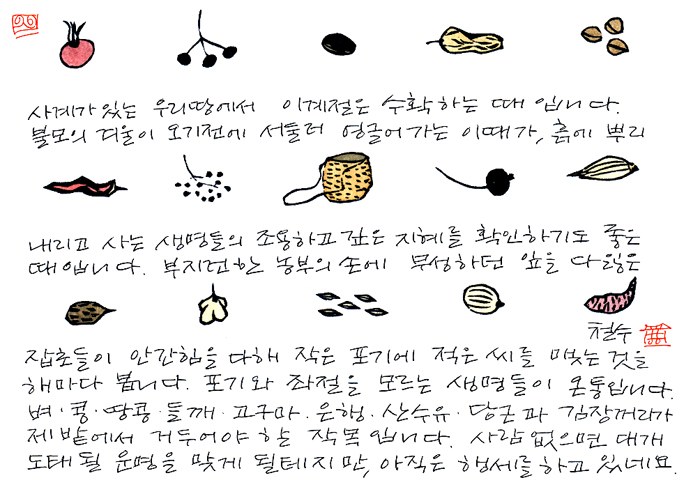 사계가 있는 우리땅에서 이계절은 수확하는 때입니다.
불모의 겨울이 오기전에 서둘러 영글어가는 이때가, 흙에 뿌리
내리고 사는 생명들의 조용하고 깊은 지혜를 확인하기도 좋은
때입니다. 부지런한 농부의 손에 무성하던 잎을 다 잃은
철수
잡초들이 안간힘을 다해 작은 포기에 적은 씨를 맺는 것을
해마다 봅니다. 포기와 좌절을 모르는 생명들이 온통입니다.
벼·콩·땅콩·들깨·고구마·은행·산수유·당근과 김장꺼리가
제 밭에서 거두어야 할 작목입니다. 사람 없으면 대개
도태될 운명을 맞게 될테지만, 아직은 행세를 하고 있네요.